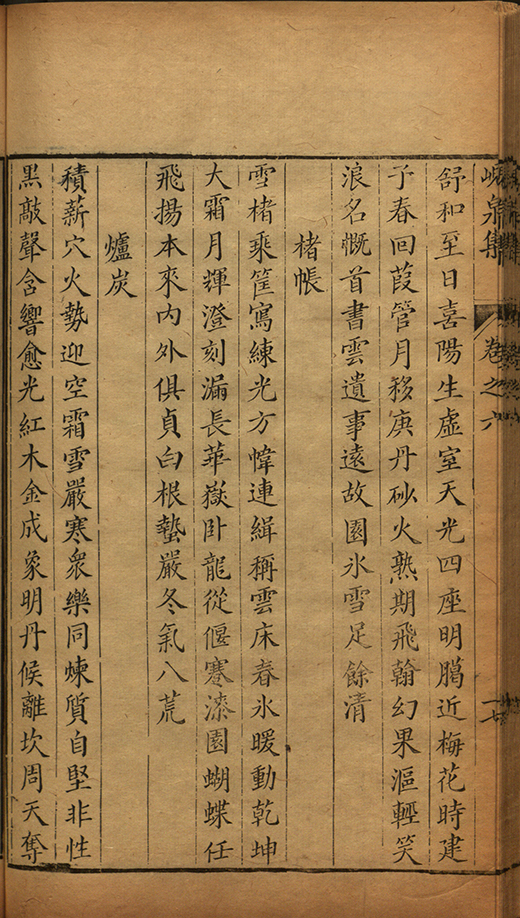 峴泉集 卷之六 十七
舒和至日喜陽生虛室天光四座明臈近梅花時建
子春回葭管月移庚丹砂火熟期飛翰幻果漚輕笑
浪名慨首書雲遺事遠故園氷雪足餘清
楮帳
雪楮乘筐寫練光方幃連緝稱雲床春氷暖動乾坤
大霜月輝澄刻漏長華嶽卧龍從偃蹇漆園蝴蝶任
飛揚本來內外俱貞白根蟄嚴冬氣八荒
爐炭
積薪穴火勢迎空霜雪嚴寒衆樂同煉質自堅非性
黑敲聲含響愈光紅木金成象明丹候離坎周天奪